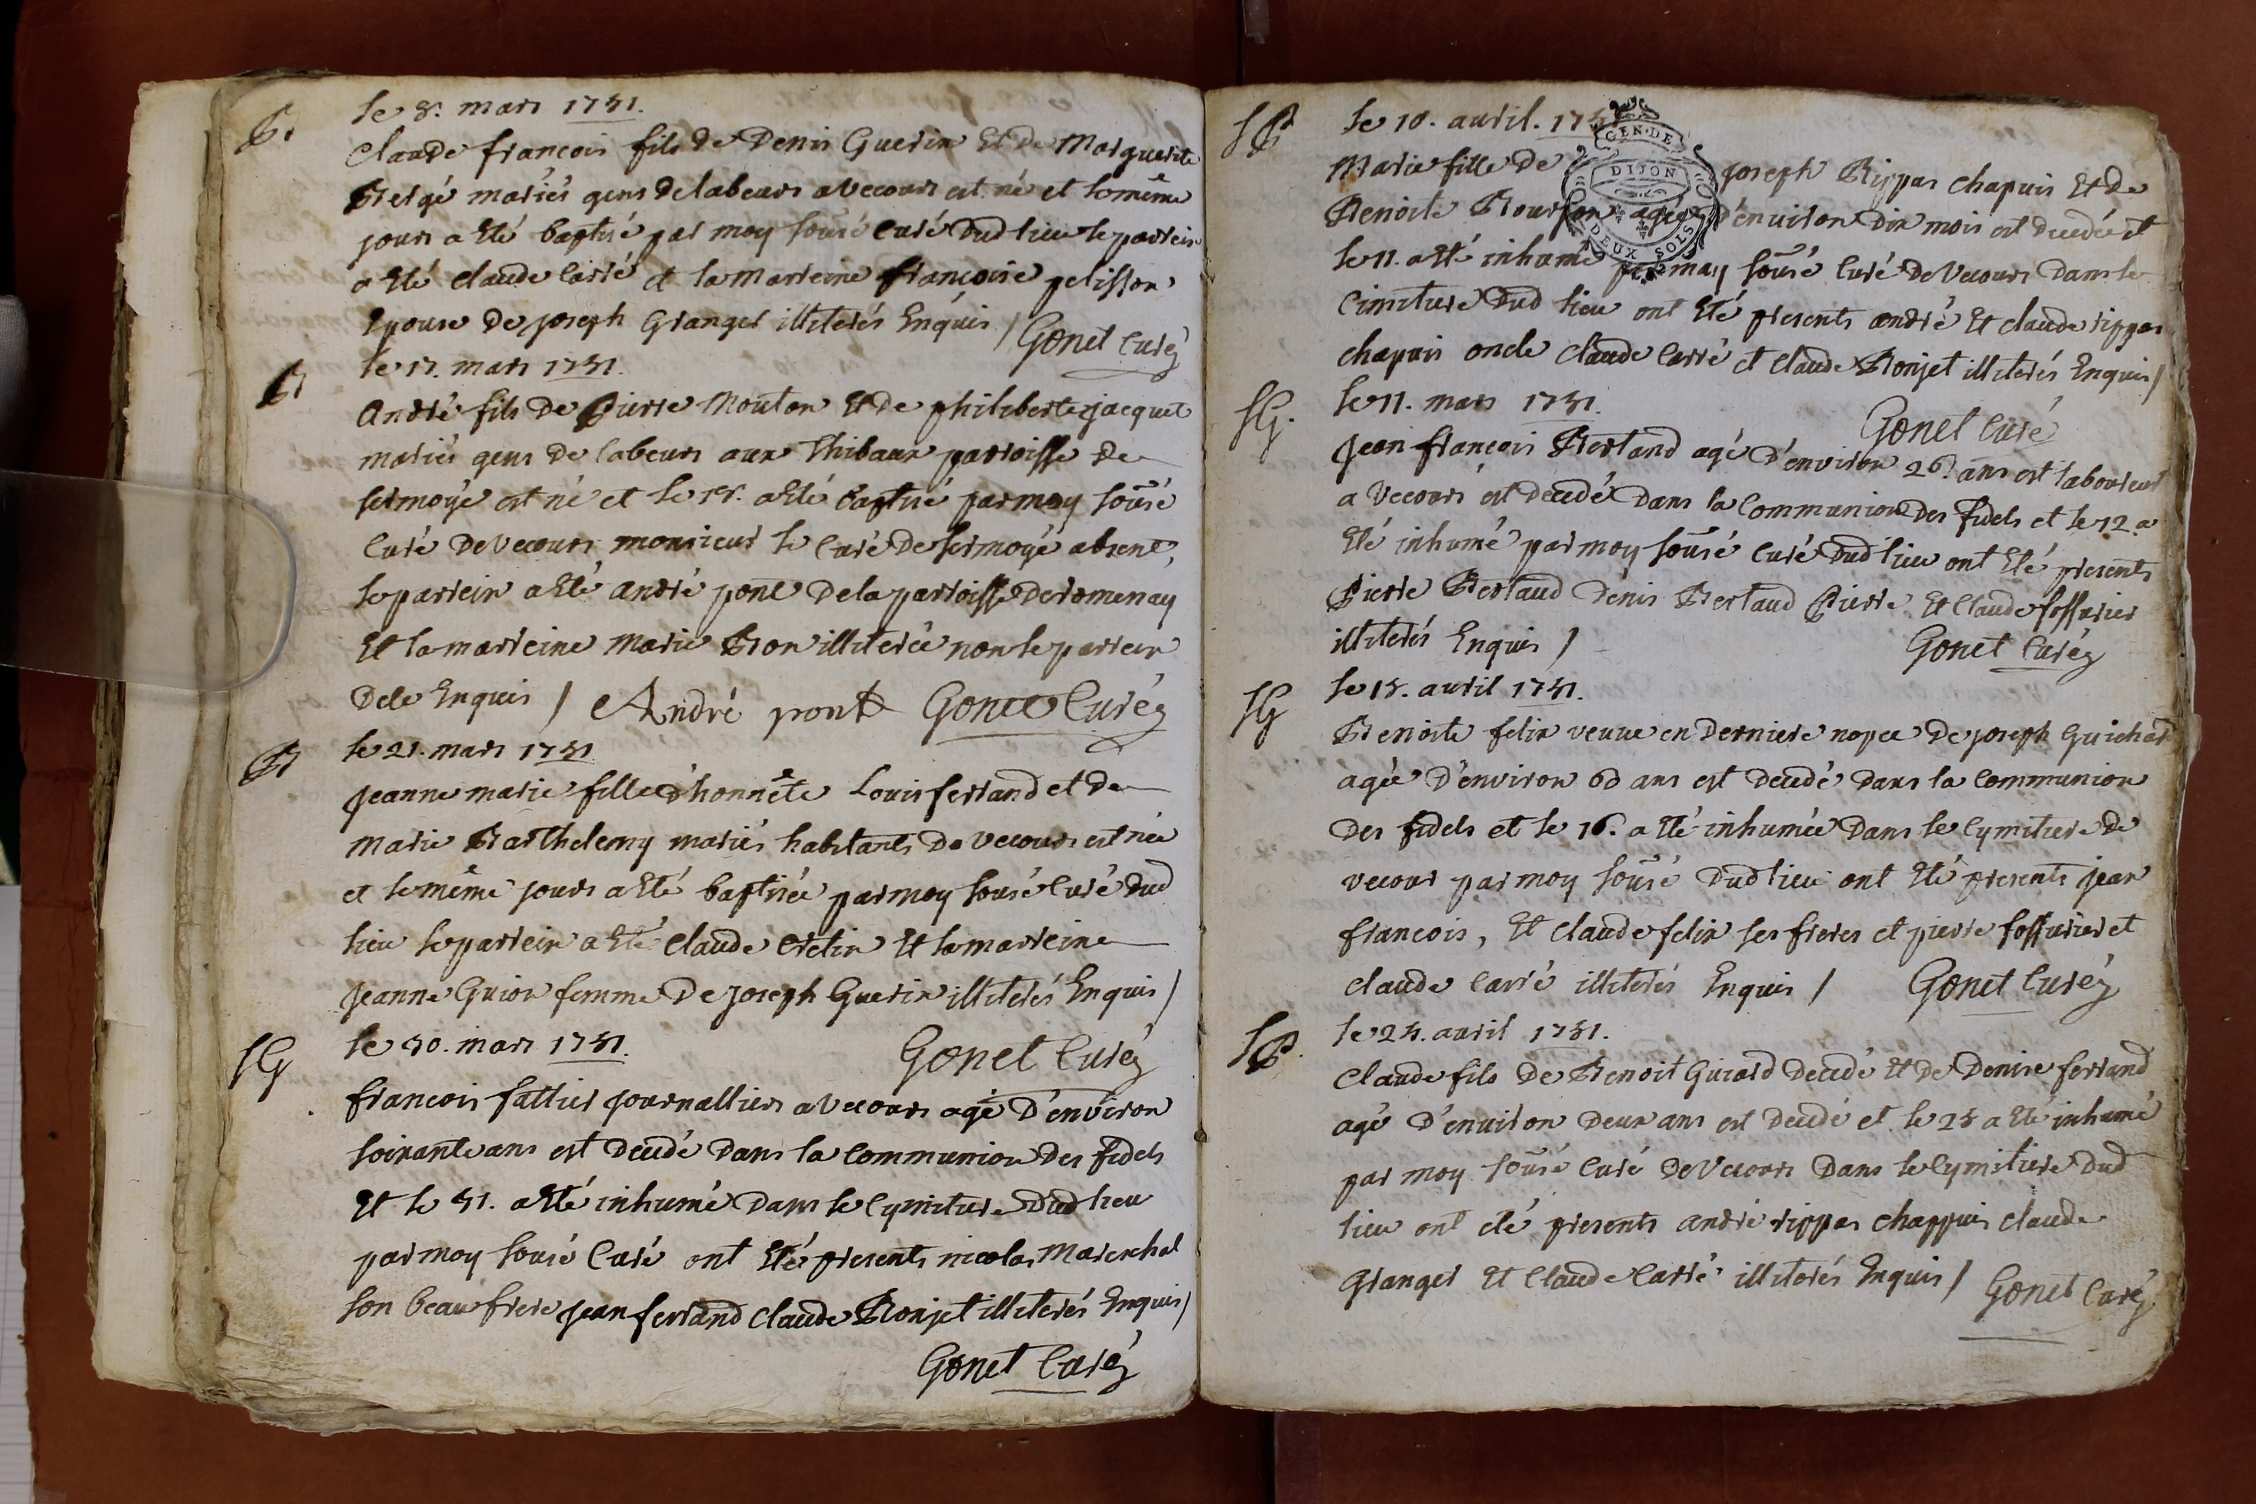 B.
le 8. mars 1751.
Claude françois fils de Denis Guerin Et de Marguerite
Bergé mariés gens de labeurs a Vecours est né et le même
jours a Eté baptisé par moy sousé Curé Dud lieu le parrein
a Eté Claude Carré et la Marreine françoise pelisson
Epouse de joseph Granger illiterés Enquis / Gonet Curé
le 17. mars 1751.
B
André fils de Pierre Mouton Et de philiberte jacquet
mariés gens de labeurs aux Thibaux parroisse de
sermoyé est né et le 18. a Eté baptisé par moy sousé
Curé De Vecours monsieur le Curé de sermoyé absent,
le parrein a Eté André pont De la parroisse De romenay
Et la marreine Marie Bon illiterée non le parrein
De le Enquis / André pont Gonet Curé
B
le 21. mars 1751
Jeanne marie fille d'honnête Louis ferrand et De
Marie Barthelemy mariés habitants De Vecours est née
et le même jours a Eté baptisée par moy sousé Curé Dud
lieu le parrein a Eté Claude Cretin Et la marreine
Jeanne Guion femme De Joseph Guerin illiterés Enquis /
SG
le 30. mars 1751. Gonet Curé
francois fattier journalliers a Vecours agé D'environ
soixante ans est decedé Dans la Communion Des fidels
Et le 31. a Eté inhumé Dans le Cymitiere Dud lieu
par moy sousé Curé ont Eté presents nicolas Mareschal
son beau frere jean ferrand Claude Bonjet illiterés Enquis /
Gonet Curé
SP
le 10. avril. 1751
GEN. DE
DIJON
DEUX SOLS
Marie fille De joseph Rippas chapuis Et De
Benoite Bourson agée D'environ Dix mois est decedée et
le 11. a Eté inhumé par moy sousé Curé De Vecours Dans le
Cimitiere Dud lieu ont Eté presents andré Et claude rippas
chapuis oncle Claude Carré et Claude Bonjet illiterés Enquis /
SG.
le 11. mars 1751. Gonet Curé
Jean françois Bertaud agé D'environ 26. ans est laboureur
a Vecours est decedé Dans la Communion Des fidels et le 12 a
Eté inhumé par moy sousé Curé Dud lieu ont Eté presents
Pierre Bertaud Denis Bertaud Pierre Et Claude foffurier
illiterés Enquis / Gonet Curé
SG
le 15. avril 1751.
Benoite felix veuve en Derniere nopce De joseph Guichard
agée D'environ 60 ans est decedé Dans la Communion
Des fidels et le 16. a Eté inhumée Dans le Cymitiere De
vecour par moy sousé Dud lieu ont Eté presents jean
francois, Et Claude felix ses freres et pierre foffurier et
Claude Carré illiterés Enquis / Gonet Curé
SP.
le 24. avril 1751.
Claude fils De Benoit Guiard Decedé Et De Denise ferrand
agé D'environ Deux ans est Decedé et le 25 a Eté inhumé
par moy sousé Curé De Vecours Dans le Cymitiere Dud
lieu ont eté presents andré rippas chappuis Claude
Granger Et Claude Carré illiterés Enquis / Gonet Curé